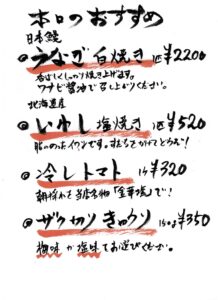 本日のおすすめ
日本鰻
うなぎ白焼き 1匹¥2200
香ばしくしっかり焼き上げます。
ワサビ醤油で召し上がりください。
北海道産
いわし 塩焼き 1匹¥520
脂ののったイワシです。すだちをかけてどうぞ!
冷しトマト 1ケ¥320
朝採れを当店名物「金華焼」で!
ザク切りきゅうり 150g¥350
梅味か塩味でお選びください。